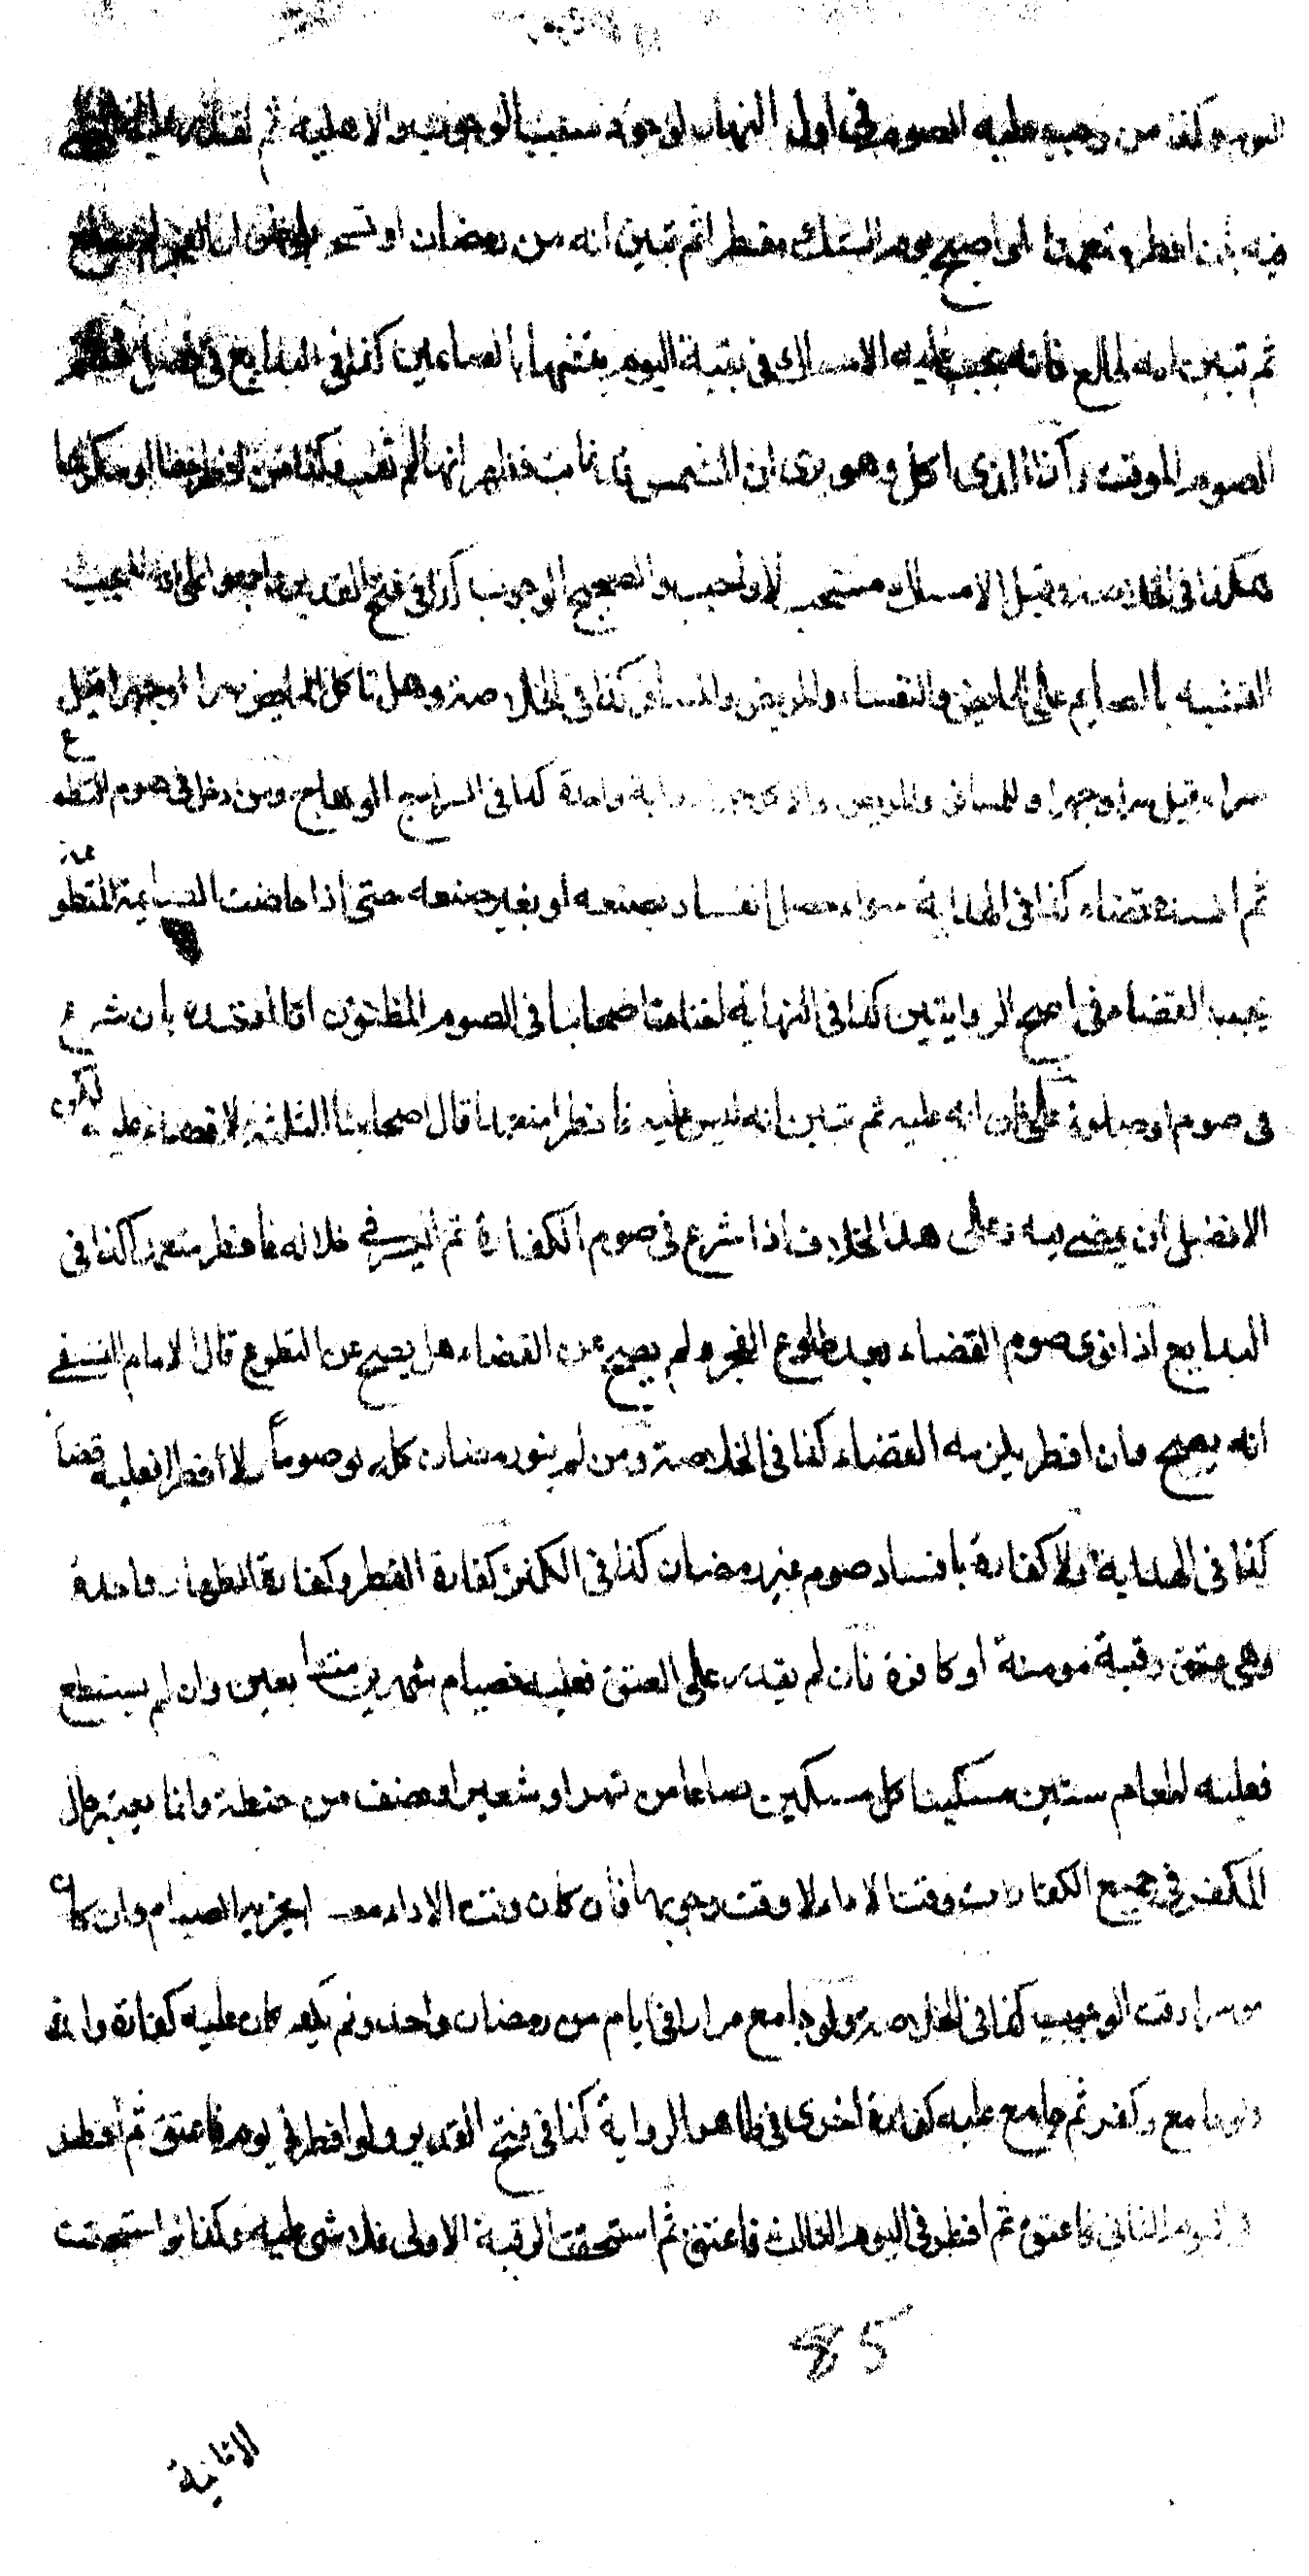 اليوم وكذا من وجب عليه الصوم في اول النهار لوجود سبب الوجوب والاهلية ثم تعذر عليه المضي
فيه بان افطر متعمدا او اصبح يوم الشك مفطرا ثم تبين انه من رمضان او تسحر على ظن ان الفجر لم يطلع
ثم تبين انه طالع فانه يجب عليه الامساك في بقية اليوم تشبها بالصائمين كذا في البدايع في فصل حكم
الصوم الموقت وكذا الذي اكل وهو يرى ان الشمس غابت فظهر انها لم تغب وكذا من افطر خطا او مكرها
هكذا في الخلاصة وقيل الامساك مستحب لا واجب والصحيح الوجوب كذا في فتح القدير واجمعوا على انه لا يجب
التشبيه بالصايم على الحايض والنفساء والمريض والمسافر كذا في الخلاصة وهل تاكل الحايض سرا او جهرا قيل
سرا وقيل سرا وجهرا وللمسافر والمريض الاكل جهرا رواية واحدة كذا في السراج الوهاج ومن دخل في صوم التطوع
ثم افسده قضاه كذا في الهداية سواء حصل الفساد بصنعه او بغير صنعه حتى اذا حاضت الصايمة المتطوعة
يجب القضاء في اصح الروايتين كذا في النهاية اختلف اصحابنا في الصوم المظنون اذا افسده بان شرع
في صوم او صلوة على ظن انه عليه ثم تبين انه ليس عليه فافطر متعمدا قال اصحابنا الثلثة لا قضاء عليه لكن
الافضل ان يمضي فيه وعلى هذا الخلاف اذا شرع في صوم الكفارة ثم ايسر في خلاله فافطر متعمدا كذا في
البدايع اذا نوى صوم القضاء بعد طلوع الفجر ولم يصح عن القضاء هل يصح عن التطوع قال الامام النسفي
انه يصح وان افطر يلزمه القضاء كذا في الخلاصة ومن لم ينو رمضان كله لا صوما ولا افطارا فعليه قضا
كذا في الهداية ولا كفارة بافساد صوم غير رمضان كذا في الكنز كفارة الفطر وكفارة الظهار واحدة
وهي عتق رقبة مومنة او كافرة فان لم يقدر على العتق فعليه صيام شهرين متتابعين وان لم يستطع
فعليه اطعام ستين مسكينا كل مسكين صاعا من تمر او شعير او نصف من حنطة وانما يعتبر حال
المكفر في جميع الكفارات وقت الاداء لا وقت وجوبها فان كان وقت الاداء معسرا يجزيه الصيام وان كان
موسرا وقت الوجوب كذا في الخلاصة ولو جامع مرارا في ايام من رمضان واحد ولم يكفر كان عليه كفارة واحدة
ولو جامع وكفر ثم جامع عليه كفارة اخرى في ظاهر الرواية كذا في فتح القدير ولو افطر في يوم فاعتق ثم افطر
في اليوم الثاني فاعتق ثم افطر في اليوم الثالث فاعتق ثم استحقت الرقبة الاولى فلا شي عليه وكذا لو استحقت
85
الثانية